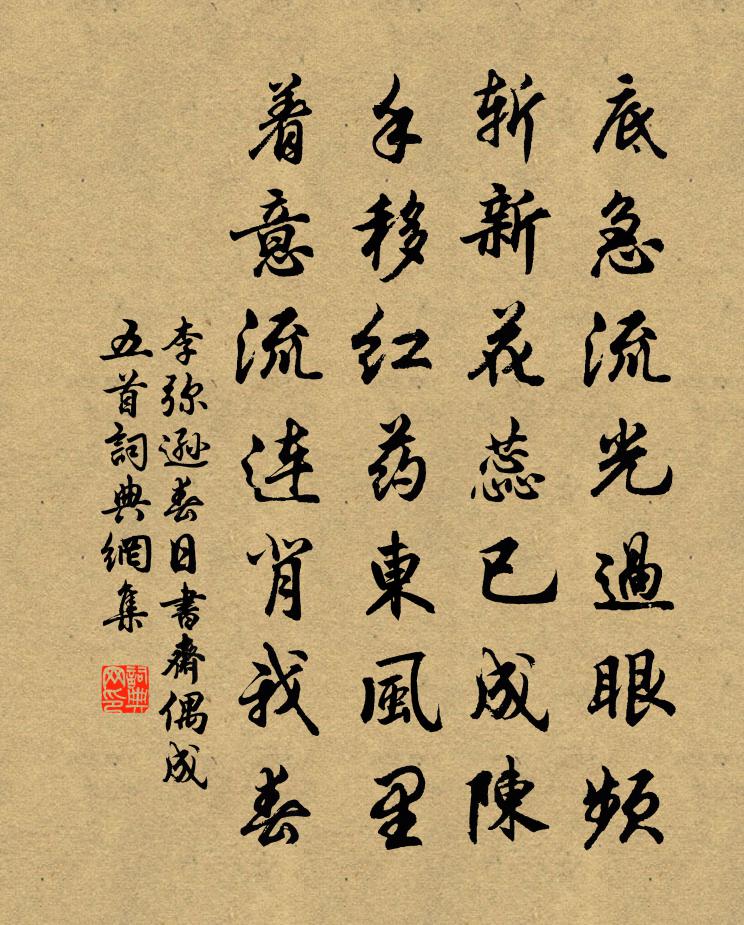 底急流光過眼頻
斬新花蕊已成陳
手移红药東風里
着意流连肖我春
李弥遜春日書齋偶成
五首詞典網集
詞典
网印